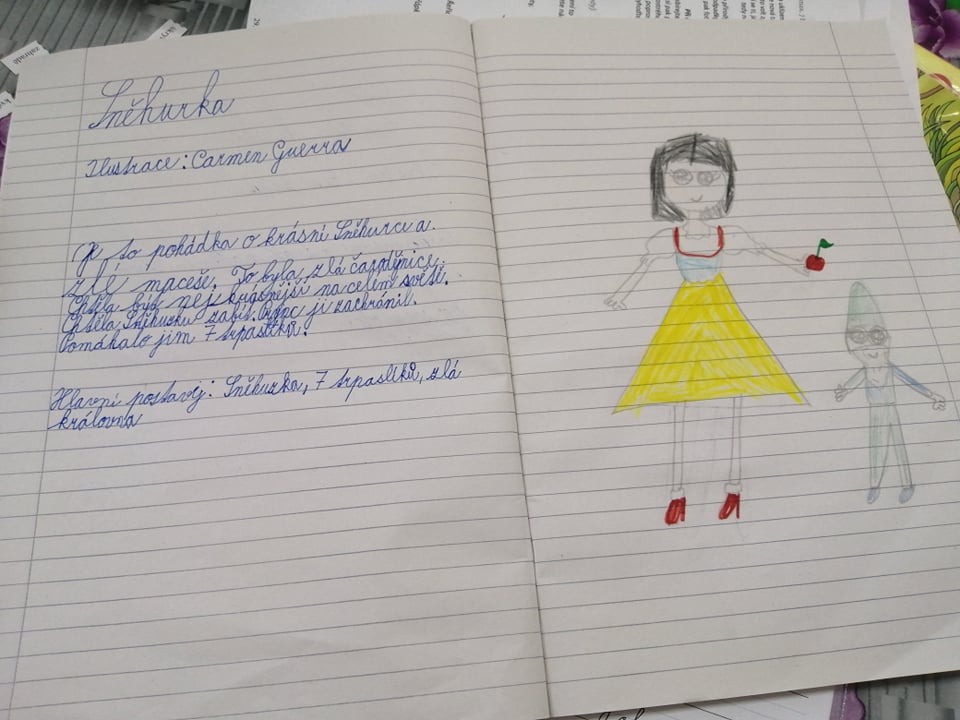 Sněhurka
Ilustrace: Carmen Guerra
Je to pohádka o krásné Sněhurce a
zlé maceše. To byla zlá čarodějnice.
Chtěla být nejkrásnější na celém světě.
Chtěla Sněhurku zabít. Princ ji zachránil.
Pomáhalo jim 7 trpaslíků.
Hlavní postavy: Sněhurka, 7 trpaslíků, zlá
královna
zahradě
29